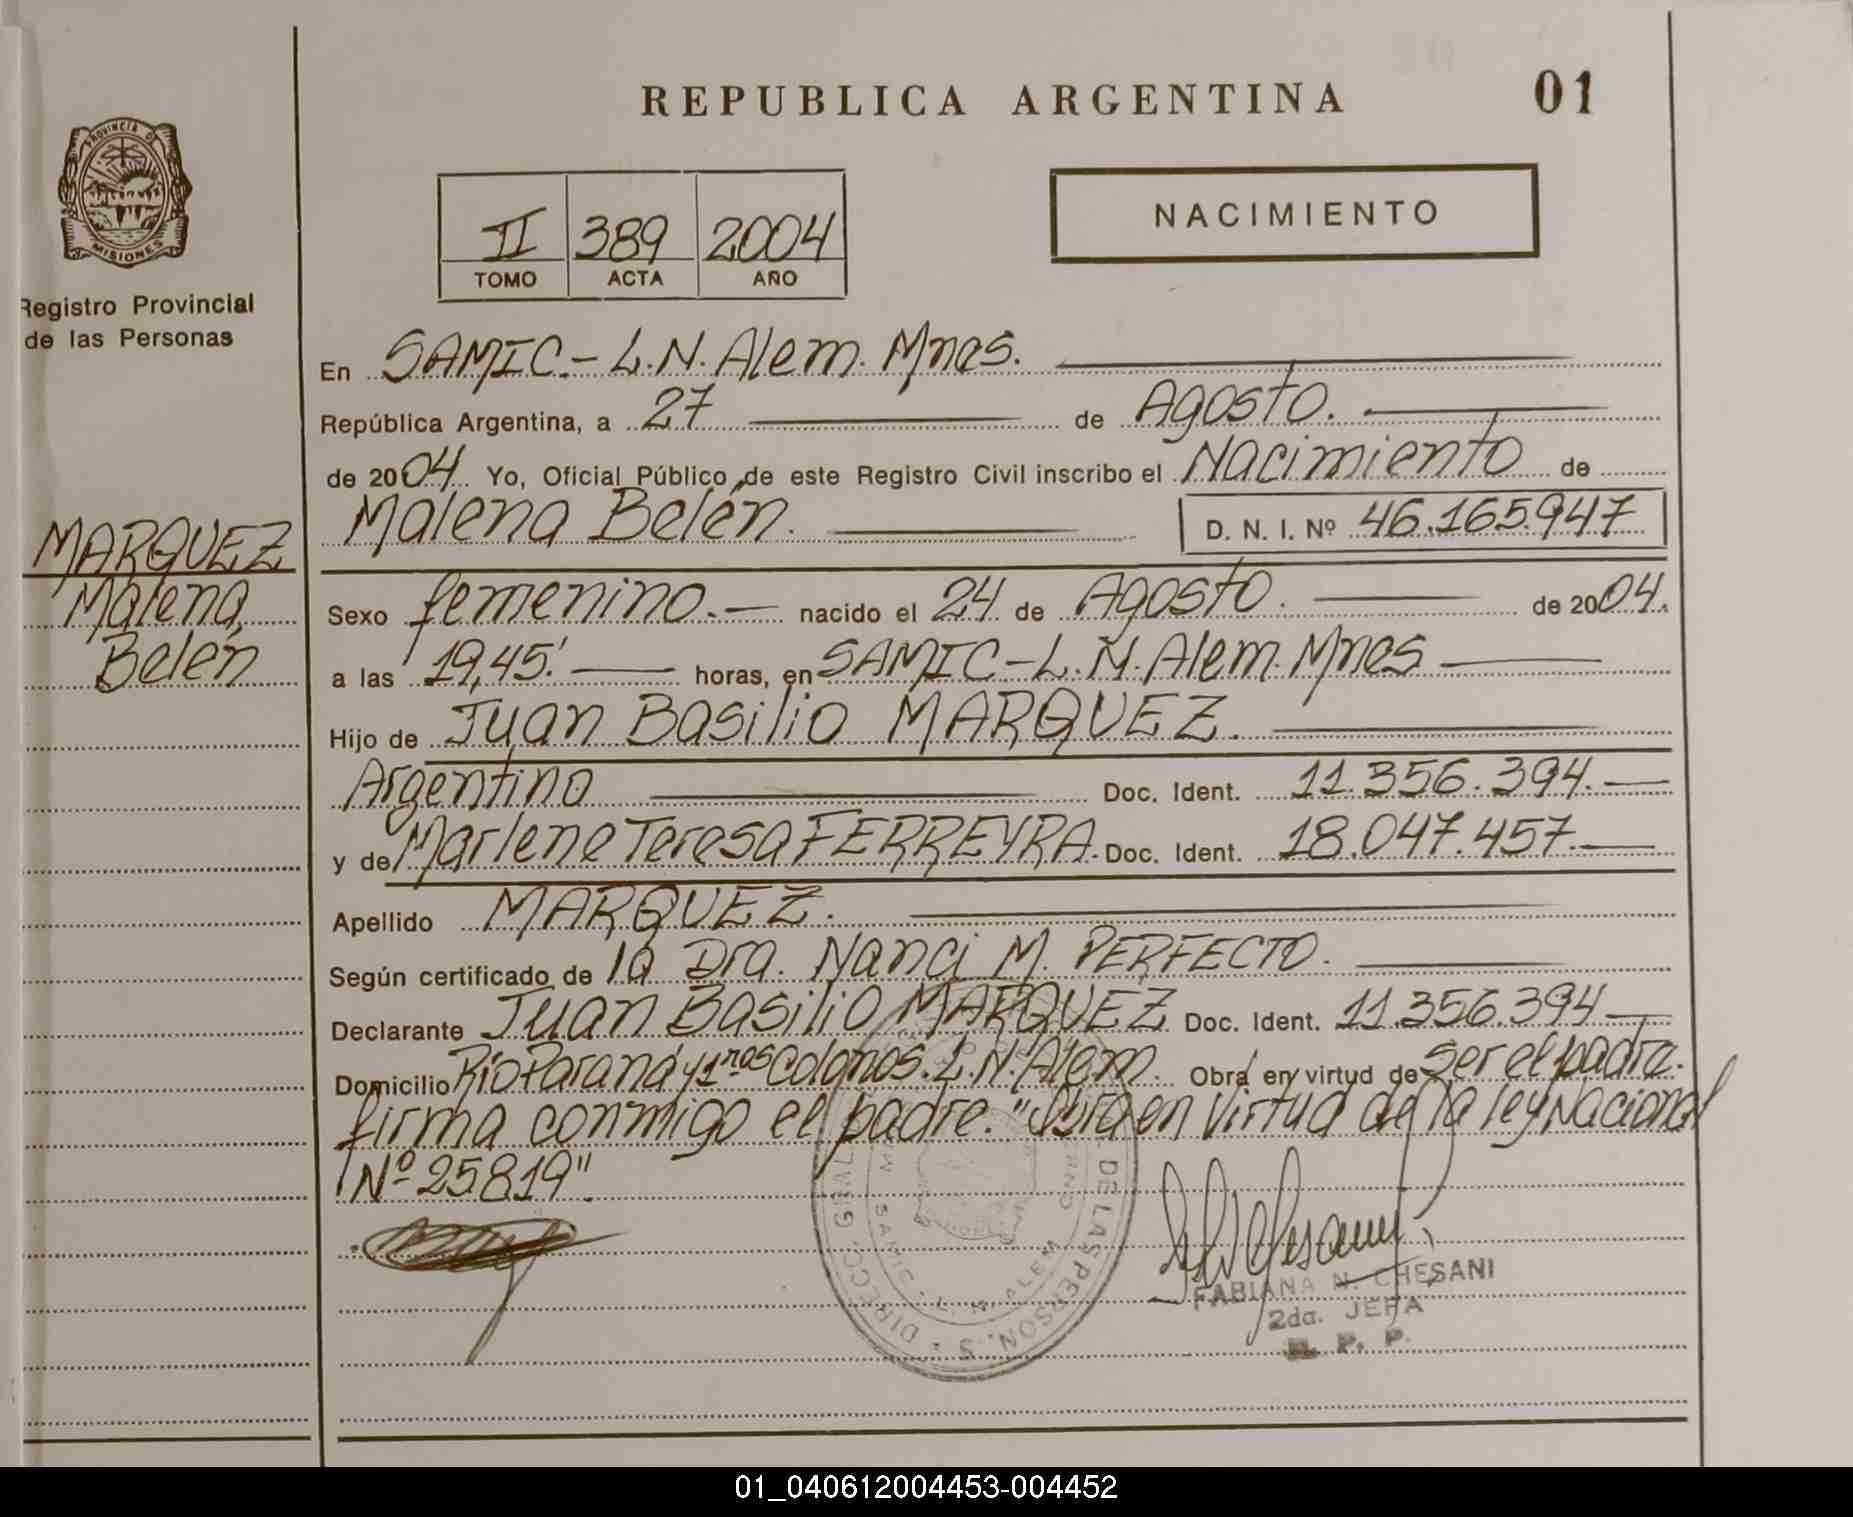 REPUBLICA ARGENTINA
01
PROVINCIA DE
MISIONES
Registro Provincial
de las Personas
II 389 2004
TOMO ACTA AÑO
NACIMIENTO
En SAMIC - L.N. Alem. Mnes.
República Argentina, a 27 de Agosto.
de 2004. Yo, Oficial Público de este Registro Civil inscribo el Nacimiento de
Malena Belén. D. N. I. Nº 46.165.947
MARQUEZ
Malena
Belén
Sexo femenino. nacido el 24 de Agosto. de 2004.
a las 19,45' horas, en SAMIC - L.N. Alem. Mnes
Hijo de Juan Basilio MARQUEZ.
Argentino Doc. Ident. 11.356.394.
y de Marlene Teresa FERREYRA. Doc. Ident. 18.047.457.
Apellido MARQUEZ.
Según certificado de la Dra. Nanci M. PERFECTO.
Declarante Juan Basilio MARQUEZ Doc. Ident. 11.356.394
Domicilio Río Paraná y 1ros Colonos. L.N. Alem. Obra en virtud de ser el padre.
firma conmigo el padre. "Obra en virtud de la ley Nacional
Nº 25819".
DE LAS PERSON.S
SAMIC - L. N. ALEM
FABIANA N. CHESANI
2da. JEFA
R. P. P.
01_040612004453-004452